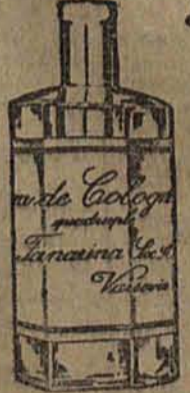 de Cologn
quadrupl
Tanatina Soc. A
Varsovie